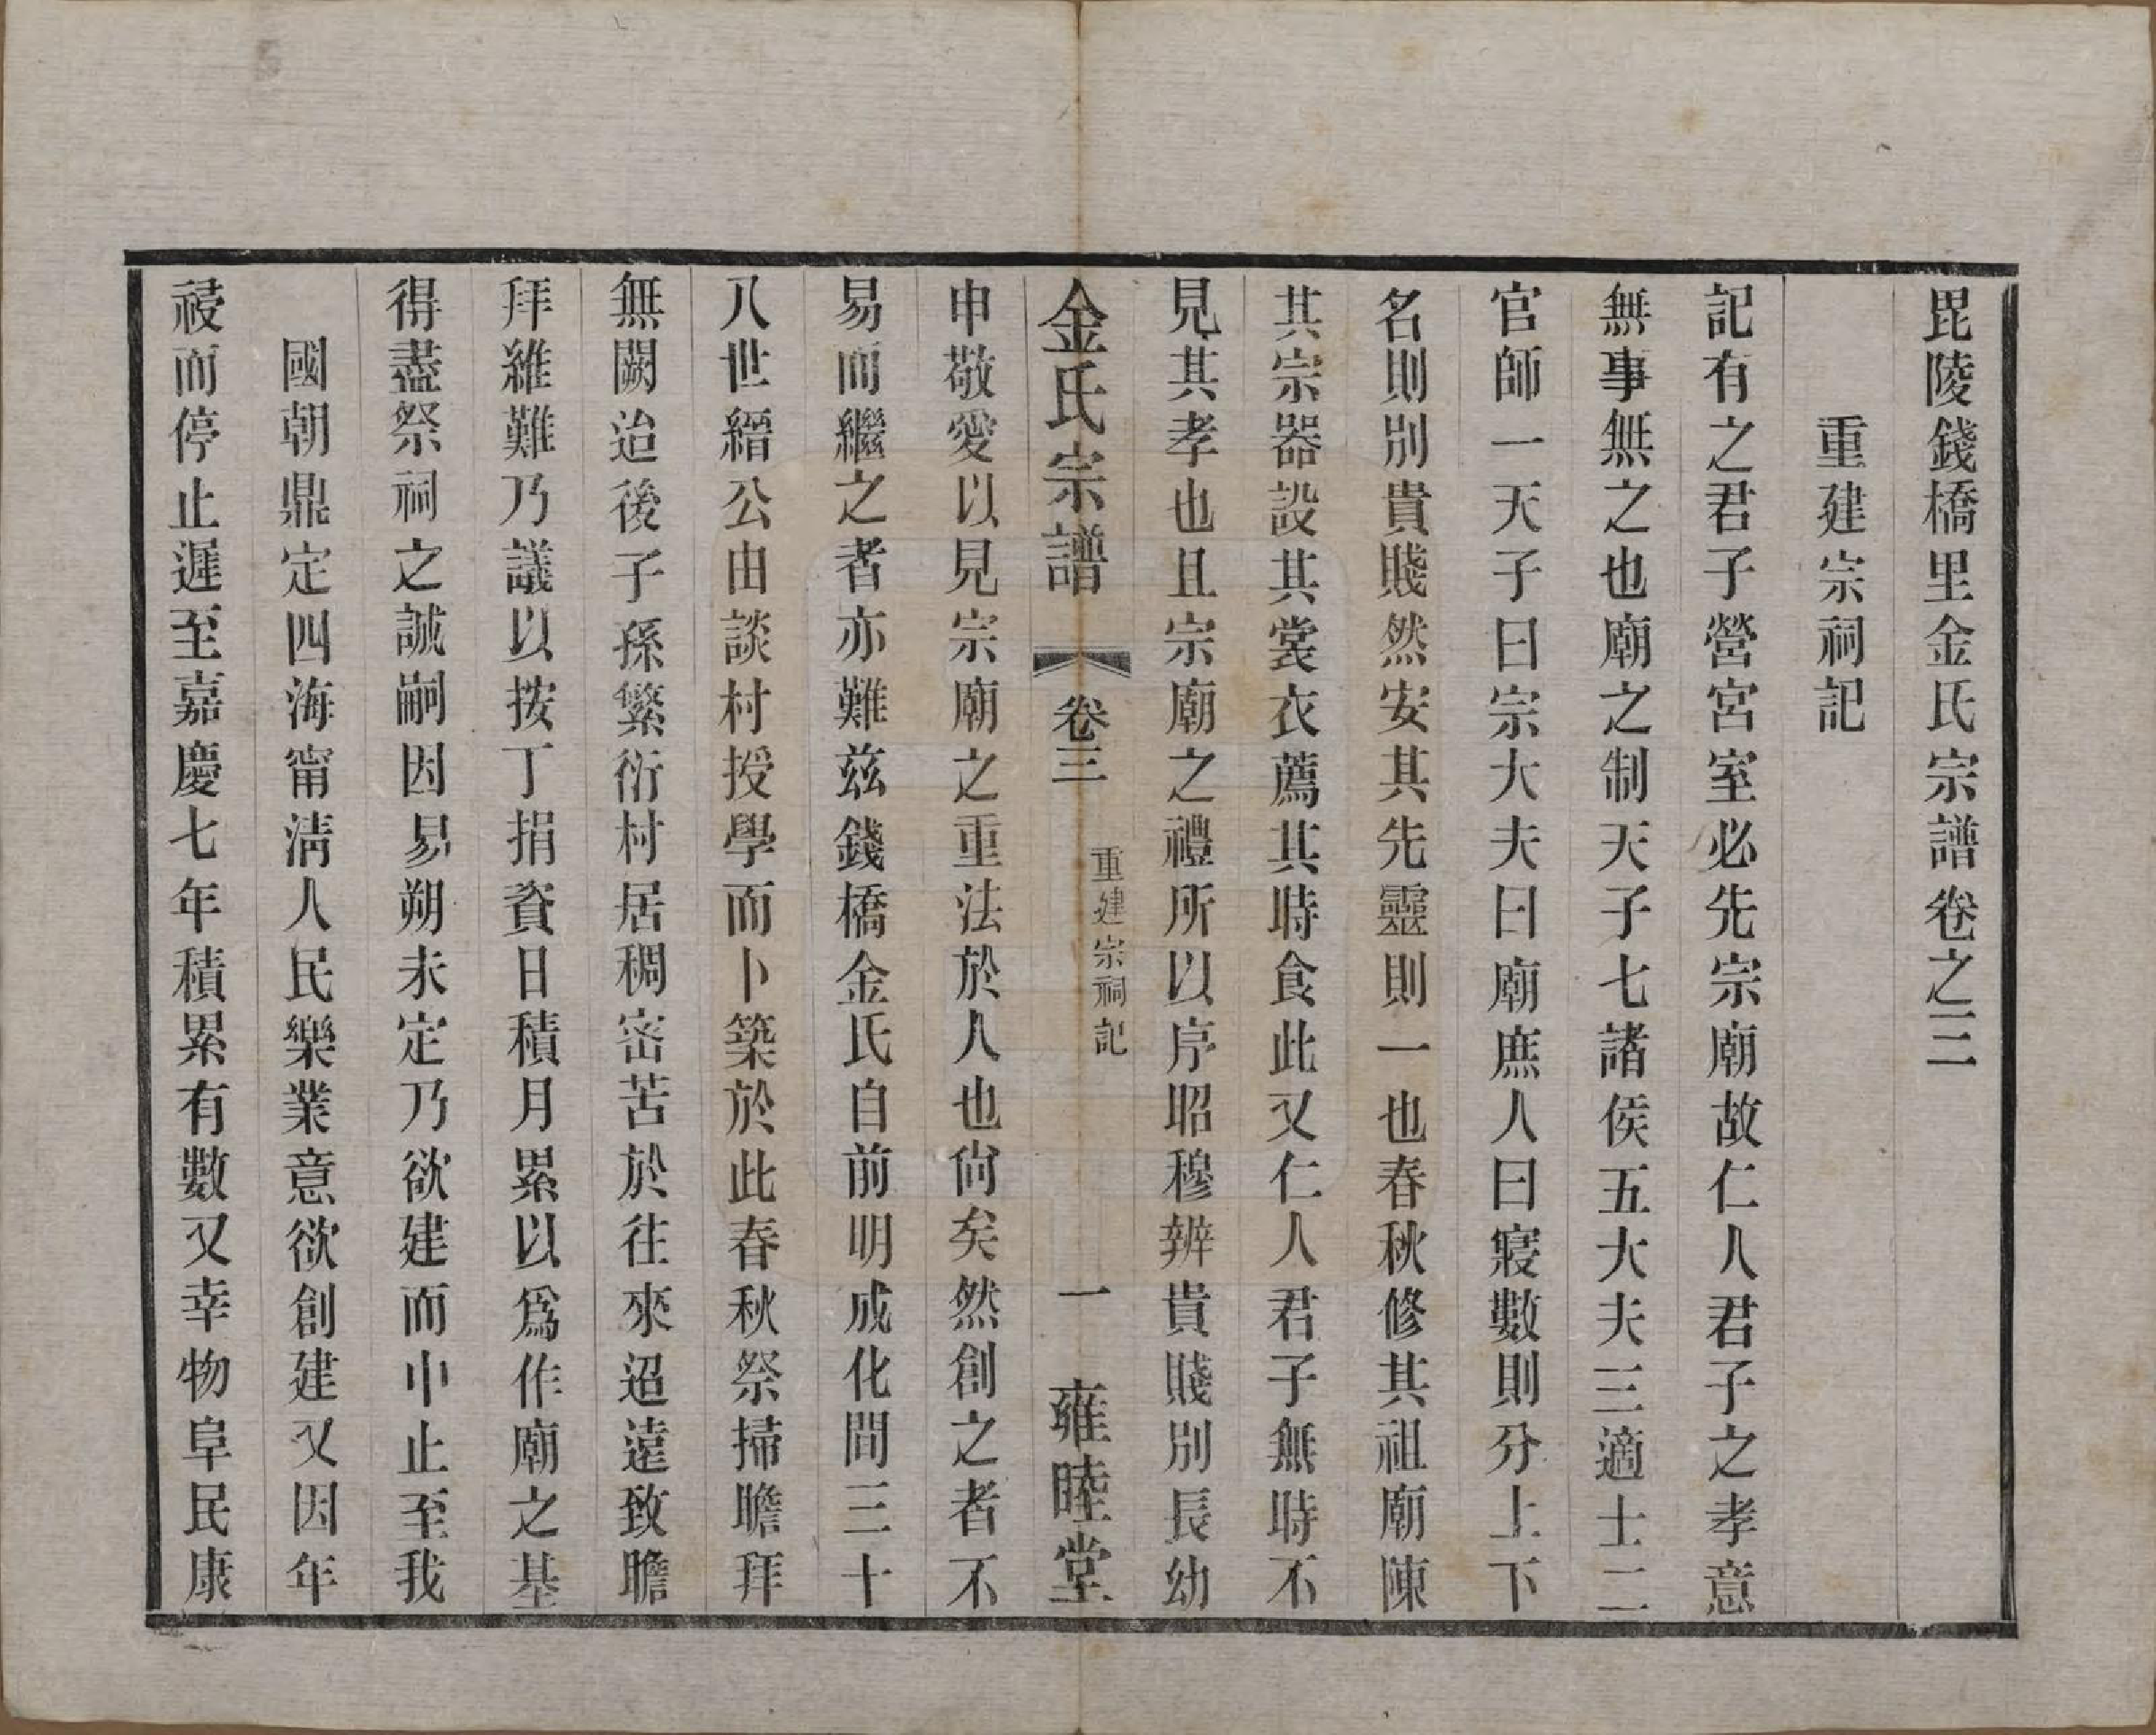 毘陵錢橋里金氏宗譜卷之三
重建宗祠記
記有之君子營宮室必先宗廟故仁人君子之孝意
無事無之也廟之制天子七諸侯五大夫三適士二
官師一天子曰宗大夫曰廟庶人曰寢數則分上下
名則別貴賤然安其先靈則一也春秋修其祖廟陳
其宗器設其裳衣薦其時食此又仁人君子無時不
見其孝也且宗廟之禮所以序昭穆辨貴賤別長幼
金氏宗譜
卷三
重建宗祠記
一
雍睦堂
申敬愛以見宗廟之重法於人也尙矣然創之者不
易而繼之者亦難茲錢橋金氏自前明成化間三十
八世縉公由談村授學而卜築於此春秋祭掃瞻拜
無闕迨後子孫繁衍村居稠密苦於往來迢遠致瞻
拜維難乃議以按丁捐資日積月累以爲作廟之基
得盡祭祠之誠嗣因易朔未定乃欲建而中止至我
國朝鼎定四海甯淸人民樂業意欲創建又因年
祲而停止遲至嘉慶七年積累有數又幸物阜民康